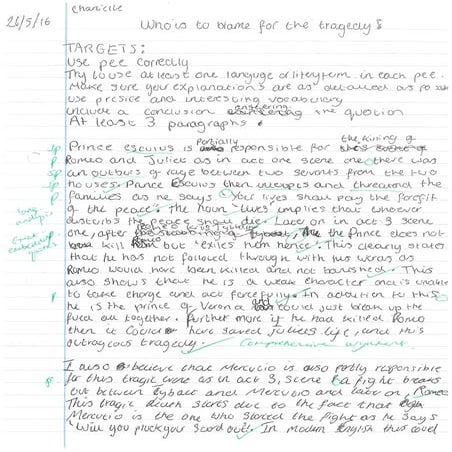 Charlie
26/5/16
Who is to blame for the tragedy?
TARGETS:
Use pee correctly
Try to use at least one language or literary term in each pee.
Make sure your explanations are as detailed as possible
use presice and interesting vocabulary
include a conclusion answering the question
At least 3 paragraphs.
Prince esculus is partially responsible for the killing of
Romeo and Juliet as in act one scene one there was
an outburst of rage between two servants from the two
houses. Prince Esculus then interupts and threatend the
families as he says 'Your lives shall pay the forfeit
of the peace'. The noun 'lives' implies that whoever
disturbs the peace shall die. Later on in act 3 scene
one, after Tybalt, the Prince does not
kill Romeo but 'exiles him hence'. This clearly states
that he has not followed through with his words as
Romeo would have been killed and not banished. This
also shows that he is a weak character and is unable
to take charge and act forcefully. In addition to this
he is the prince of Verona could just break up the
feud all together. Further more if he had killed Romeo
then it could have saved Juliets life, and this
outrageous tragedy. Comprehensive argument.
I also believe that Mercutio is also partly responsible
for this tragic crime as in act 3, scene 1 a fight breaks
out between Tybalt and Mercutio and later on, Romeo
This tragic death starts due to the fact that
Mercutio is the one who started the fight as he says
'Will you pluck your sword out'. In modern English this could